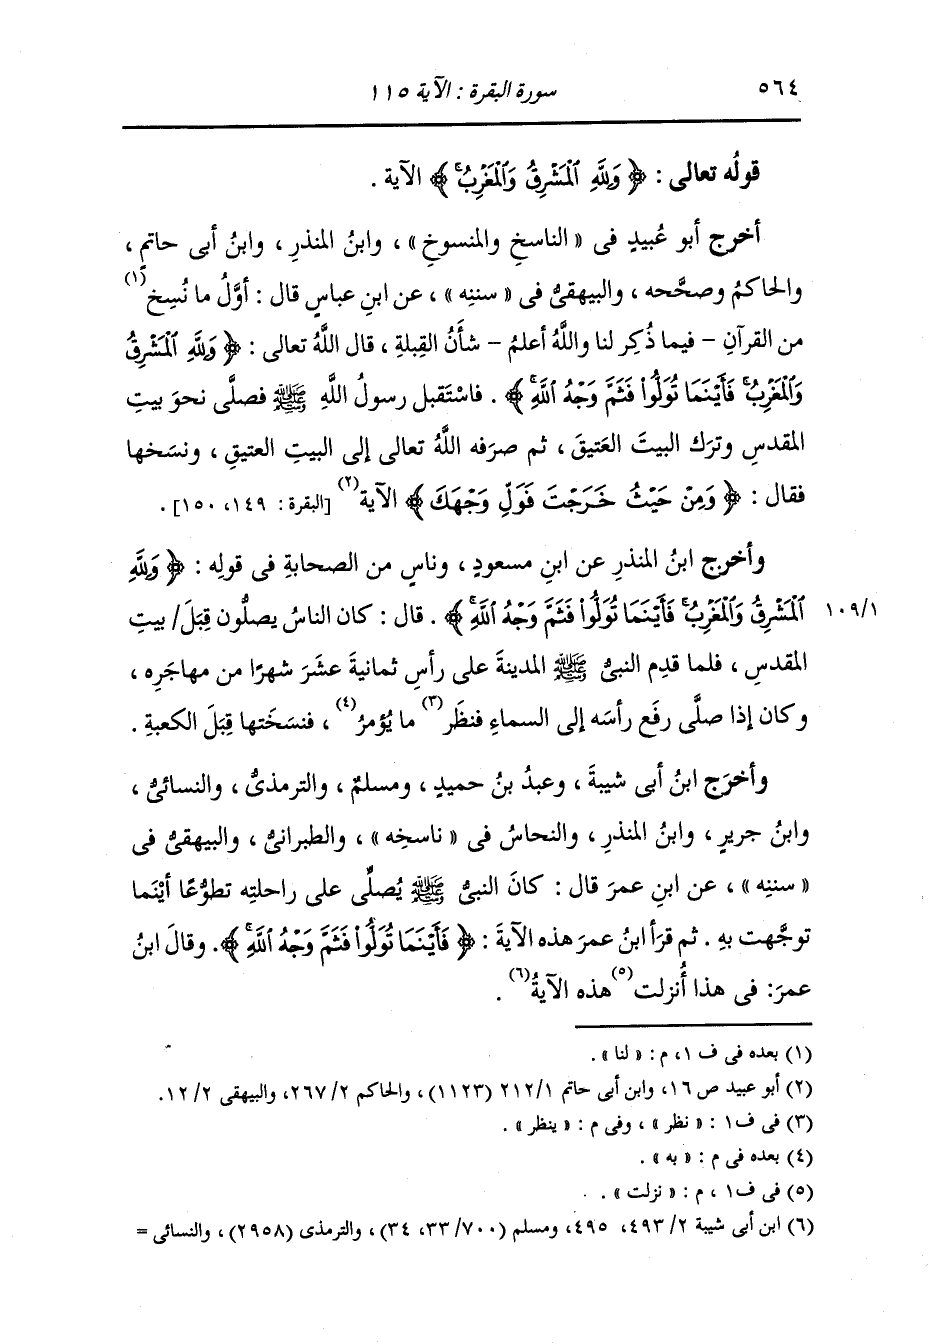 ٥٦٤
سورة البقرة : الآية ١١٥
قولُه تعالى : ﴿ وَلِلَّهِ ٱلْمَشْرِقُ وَٱلْمَغْرِبُ ۚ ﴾ الآية .
أخرج أبو عُبيدٍ فى « الناسخِ والمنسوخِ » ، وابنُ المنذرِ ، وابنُ أبى حاتمٍ ،
والحاكمُ وصحَّحه ، والبيهقىُّ فى « سننِه » ، عن ابنِ عباسٍ قال : أوَّلُ ما نُسِخ(١)
من القرآنِ – فيما ذُكِر لنا واللَّهُ أعلمُ – شأنُ القِبلةِ ، قال اللَّهُ تعالى : ﴿ وَلِلَّهِ ٱلْمَشْرِقُ
وَٱلْمَغْرِبُ ۚ فَأَيْنَمَا تُوَلُّوا۟ فَثَمَّ وَجْهُ ٱللَّهِ ۚ ﴾ . فاسْتَقبل رسولُ اللَّهِ ﷺ فصلَّى نحوَ بيتِ
المقدسِ وترَك البيتَ العَتيقَ ، ثم صرَفه اللَّهُ تعالى إلى البيتِ العتيقِ ، ونسَخها
فقال : ﴿ وَمِنْ حَيْثُ خَرَجْتَ فَوَلِّ وَجْهَكَ ﴾ الآية(٢) [البقرة : ١٤٩، ١٥٠] .
وأخرج ابنُ المنذرِ عن ابنِ مسعودٍ ، وناسٍ من الصحابةِ فى قولِه : ﴿ وَلِلَّهِ
ٱلْمَشْرِقُ وَٱلْمَغْرِبُ ۚ فَأَيْنَمَا تُوَلُّوا۟ فَثَمَّ وَجْهُ ٱللَّهِ ۚ ﴾ . قال : كان الناسُ يصلُّون قِبَلَ/ بيتِ ١٠٩/١
المقدسِ ، فلما قدِم النبىُّ ﷺ المدينةَ على رأسِ ثمانيةَ عشَرَ شهرًا من مهاجَرِه ،
وكان إذا صلَّى رفَع رأسَه إلى السماءِ فنظَر(٣) ما يُؤمرُ(٤) ، فنسَخَتها قِبَلَ الكعبةِ .
وأخرَج ابنُ أبى شيبةَ ، وعبدُ بنُ حميدٍ ، ومسلمٌ ، والترمذىُّ ، والنسائىُّ ،
وابنُ جريرٍ ، وابنُ المنذرِ ، والنحاسُ فى « ناسخِه » ، والطبرانىُّ ، والبيهقىُّ فى
« سننِه » ، عن ابنِ عمرَ قال : كانَ النبىُّ ﷺ يُصلِّى على راحلتِه تطوُّعًا أيْنَما
توجَّهت بهِ . ثم قرَأ ابنُ عمرَ هذه الآيةَ : ﴿ فَأَيْنَمَا تُوَلُّوا۟ فَثَمَّ وَجْهُ ٱللَّهِ ۚ ﴾. وقالَ ابنُ
عمرَ: فى هذا أُنزلت(٥) هذه الآيةُ(٦) .
(١) بعده فى ف ١، م : « لنا » .
(٢) أبو عبيد ص ١٦، وابن أبى حاتم ٢١٢/١ (١١٢٣) ، والحاكم ٢٦٧/٢، والبيهقى ١٢/٢.
(٣) فى ف١ : « نظر » ، وفى م : « ينظر » .
(٤) بعده فى م : « به » .
(٥) فى ف١ ، م : « نزلت » .
(٦) ابن أبى شيبة ٤٩٣/٢، ٤٩٥، ومسلم (٣٣/٧٠٠، ٣٤) ، والترمذى (٢٩٥٨) ، والنسائى =